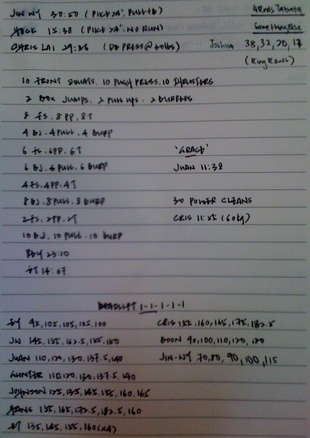 JIN-NY 30:50 (PIKE 24", PULL-UP)
15:38 (PIKE 24", NO RUN)
CHRIS LAI 29:56 (DB PRESS @ 50lbs) Joshua 38, 32, 20, 17
(Ring Rows)
10 FRONT SQUATS. 10 PUSH PRESS. 10 THRUSTERS
2 BOX JUMPS. 2 PULL UPS. 2 BURPEES
8 FS. 8 PP. 8T
4 BJ. 4 PULL. 4 BURP
6 FS. 6PP. 6T 'GRACE'
6 BJ. 6 PULL. 6 BURP JUAN 11:38
4 FS. 4PP. 4T
8 BJ. 8 PULL. 8 BURP 30 POWER CLEANS
2 FS. 2PP. 2T CRIS 11:25
10 BJ. 10 PULL. 10 BURP
23:10
14:07
DEADLIFT 1-1-1-1-1
95, 105, 105, 105, 100 CRIS 155, 160, 165, 175, 182.5
145, 155, 162.5, BOON 90, 100, 110, 120, 130
JUAN 110, 120, 130, 137.5, 140 JIN-NY 70, 80, 90, 100, 115
GUNTER 110, 120, 130, 137.5, 140
JOHNSON 125, 135, 145, 155, 160, 165
135, 165, 172.5, 182.5, 160
135, 145, 155, 160 (x4)